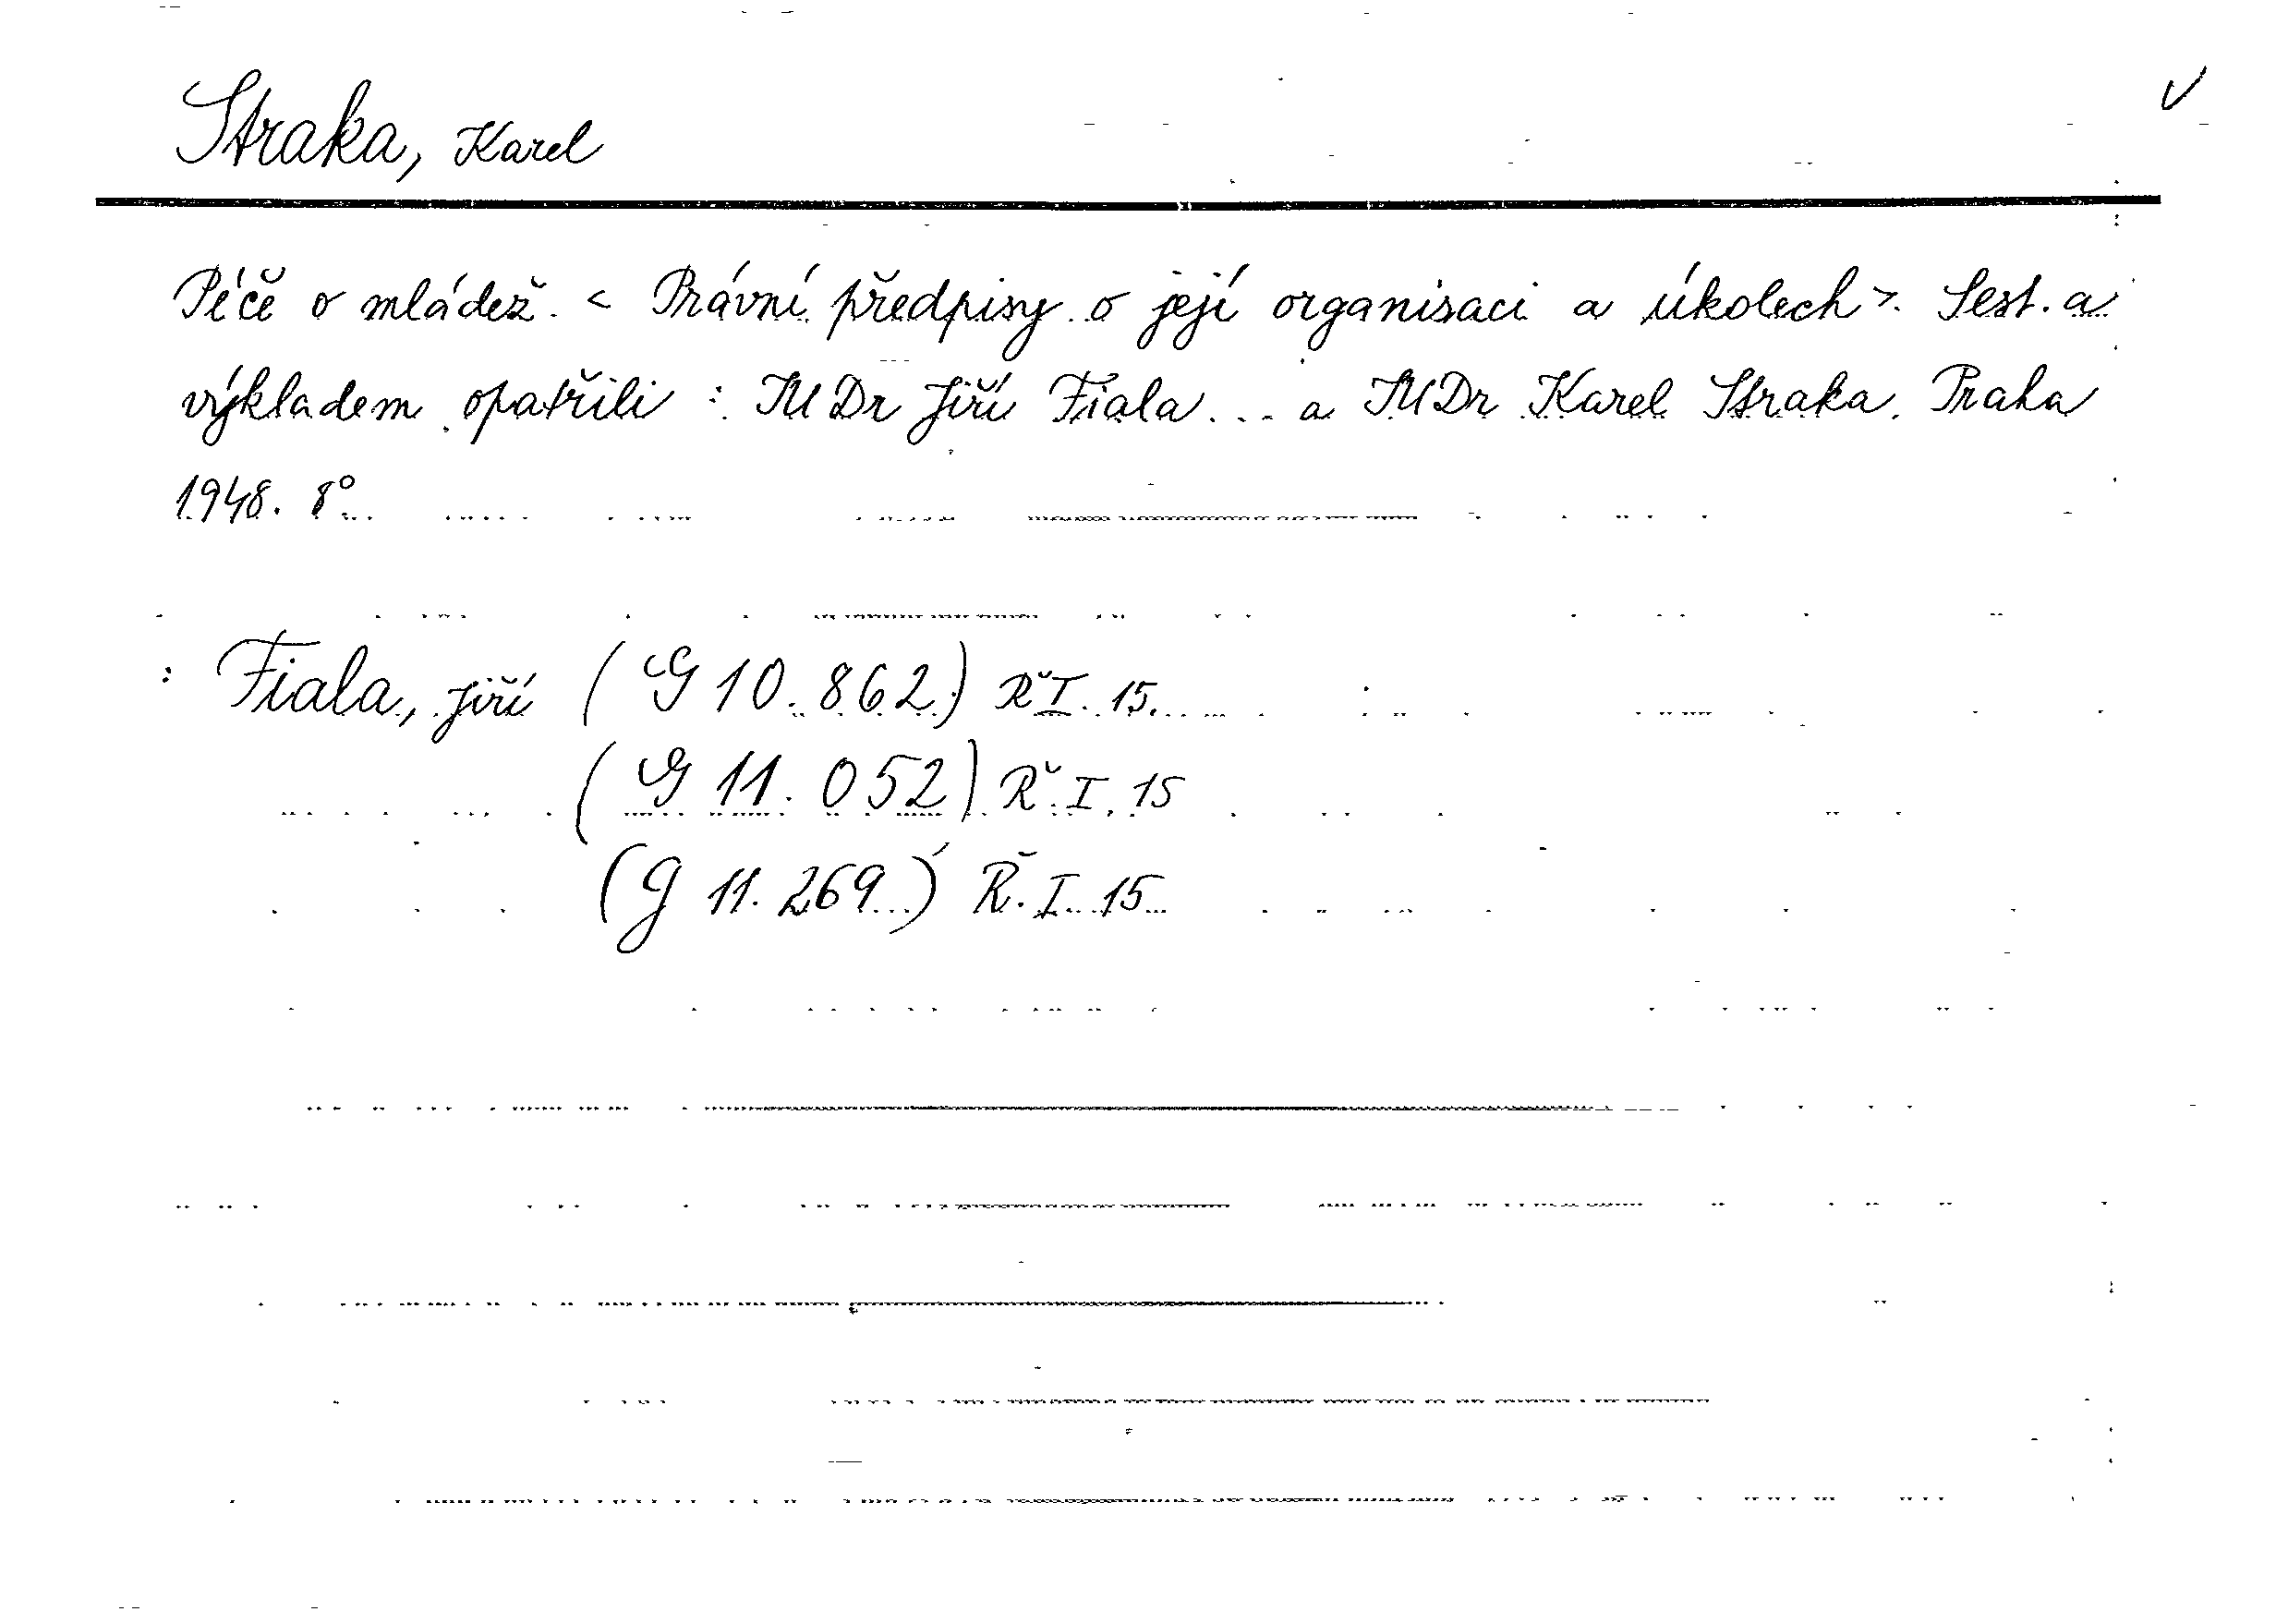 Straka, Karel
Péče o mládež. < Právní předpisy o její organisaci a úkolech >. Sest. a
výkladem opatřili : JUDr Jiří Fiala... a JUDr Karel Straka. Praha
1948. 8°.
: Fiala, Jiří (G 10.862) Ř I. 15.
(G 11.052) Ř. I. 15
(G 11.269) Ř. I. 15